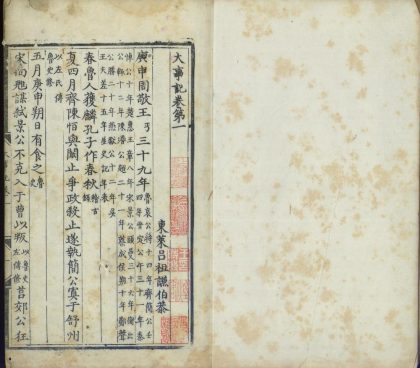 大事記卷第一
東萊呂祖謙伯恭
庚申周敬王丐三十九年魯哀公將十四年齊簡公壬
四年晉定公午三十一年秦
悼公十年楚惠王章八年宋景公頭曼三十六年衛出
公輒十二年陳湣公越二十一年蔡成侯朔十年鄭聲
公勝二十年燕獻公十二年吳
王夫差十五年星史記年表
春魯人獲麟孔子作春秋
夏四月齊陳恆與闞止爭政殺止遂執簡公寘于舒州
以左氏傳
魯史修
五月庚申朔日有食之魯史
宋向魋謀弒景公不克入于曹以叛以魯史左傳修莒郊公狂